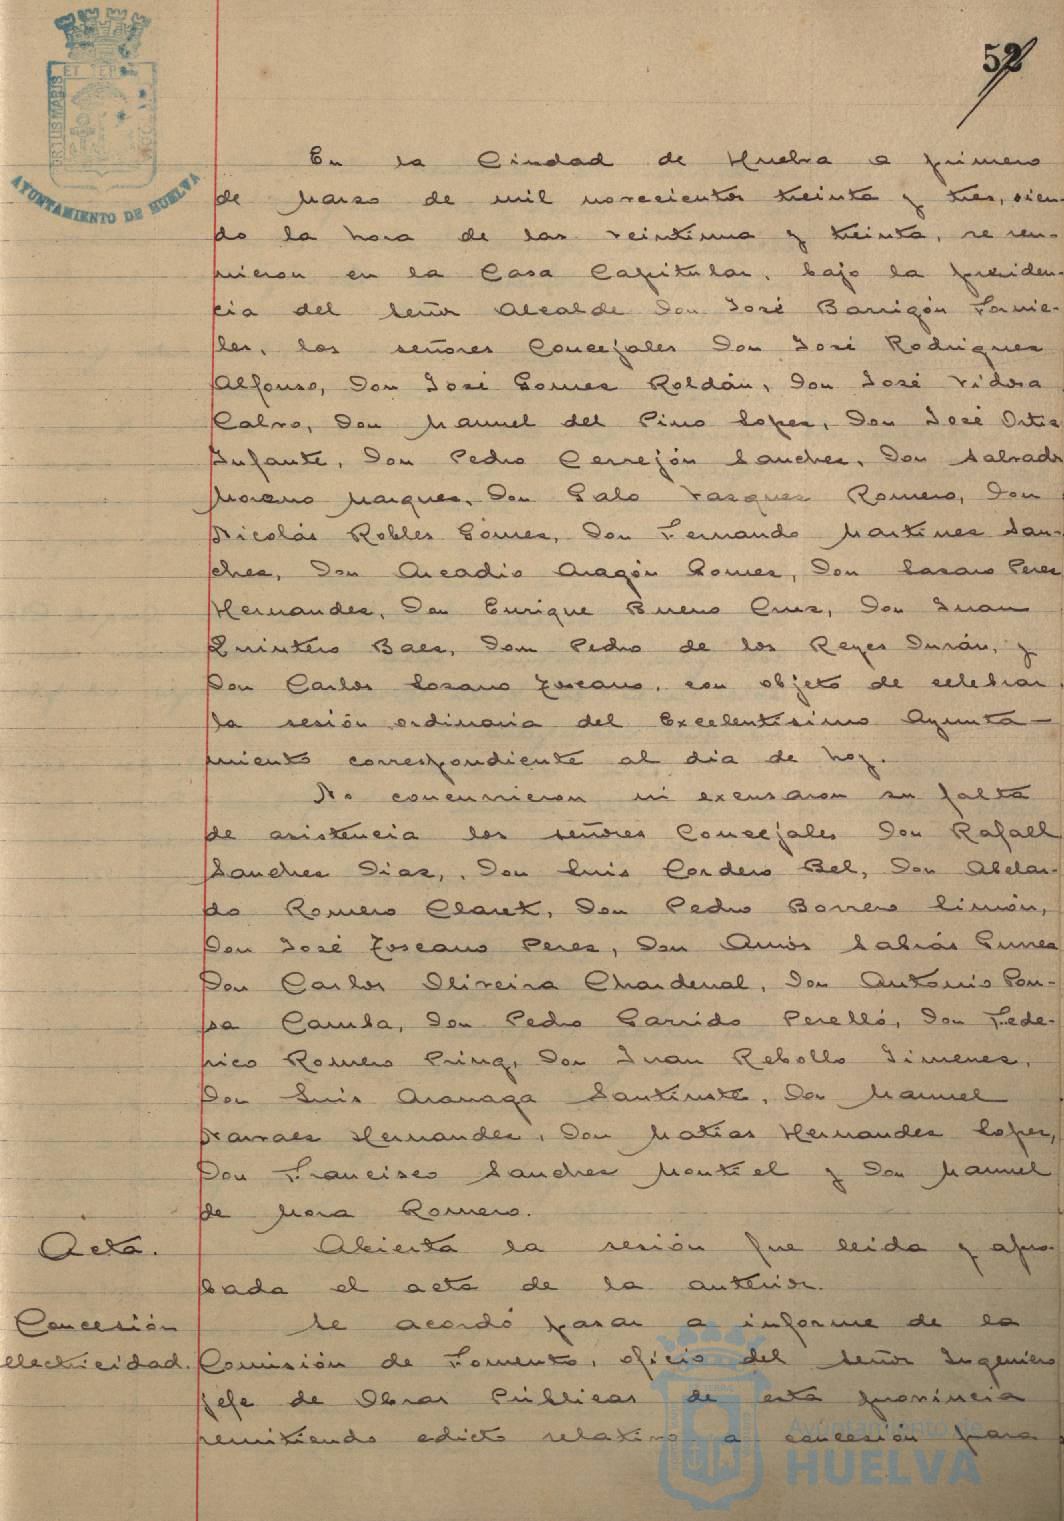 52
PORTUS MARIS ET TERRAE
AYUNTAMIENTO DE HUELVA
En la Ciudad de Huelva a primero
de Marzo de mil novecientos treinta y tres, sien-
do la hora de las veintiuna y treinta, se reu-
nieron en la Casa Capitular, bajo la presiden-
cia del Señor Alcalde Don José Barrigón Fornie-
les, los señores Concejales Don José Rodriguez
Alfonso, Don José Gomez Roldán, Don José Vidosa
Calvo, Don Manuel del Pino Lopez, Don José Ortiz
Infante, Don Pedro Cerrejón Sanchez, Don Salvador
Moreno Marquez, Don Galo Vazquez Romero, Don
Nicolás Robles Gómez, Don Fernando Martinez San-
chez, Don Arcadio Aragón Gomez, Don Lazaro Perez
Hernandez, Don Enrique Bueno Cruz, Don Juan
Quintero Baez, Don Pedro de los Reyes Durán, y
Don Carlos Lozano Toscano, con objeto de celebrar
la sesión ordinaria del Excelentísimo Ayunta-
miento correspondiente al dia de hoy.
No concurrieron ni excusaron su falta
de asistencia los señores Concejales Don Rafael
Sanchez Diaz, . Don Luis Cordero Bel, Don Abelar-
do Romero Claret, Don Pedro Borrero Limón,
Don José Toscano Perez, Don Amós Sabrás Gurrea
Don Carlos Oliveira Chardenal, Don Antonio Pou-
sa Camba, Don Pedro Garrido Perelló, Don Fede-
rico Romero Pring, Don Juan Rebollo Jimenez,
Don Luis Aranaga Santiuste, Don Manuel
Narvaez Hernandez, Don Matias Hernandez Lopez,
Don Francisco Sanchez Montiel y Don Manuel
de Mora Romero.
Acta. Abierta la sesión fue leida y apro-
bada el acta de la anterior.
Concesión Se acordó pasar a informe de la
electricidad. Comisión de Fomento, oficio del Señor Ingeniero
jefe de Obras Públicas de esta provincia
remitiendo edicto relativo a concesión para
Ayuntamiento de
HUELVA